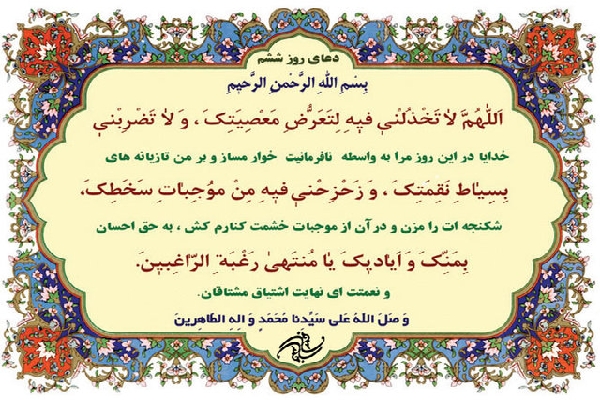 دعای روز ششم
بِسْمِ اللهِ الرَّحْمنِ الرَّحيمِ
اَللّهُمَّ لاٰ تَخْذُلْني فيهِ لِتَعَرُّضِ مَعْصِيَتِکَ، وَ لاٰ تَضْرِبْني
خدایا در این روز مرا به واسطه نافرمانیت خوار مساز و بر من تازیانه های
بِسِيٰاطِ نَقِمَتِکَ، وَ زَحْزِحْني فيهِ مِنْ مُوجِبٰاتِ سَخَطِکَ،
شکنجه ات را مزن و در آن از موجبات خشمت کنارم کش ، به حق احسان
بِمَنِّکَ وَ اَياديکَ يٰا مُنتَهىٰ رَغْبَةِ الرّٰاغِبينَ.
و نعمتت ای نهایت اشتیاق مشتاقان.
وَ صَلَّ اللهُ عَلى سَيِّدِنا مُحَمَّدٍ وَ الِهِ الطّاهِرينَ